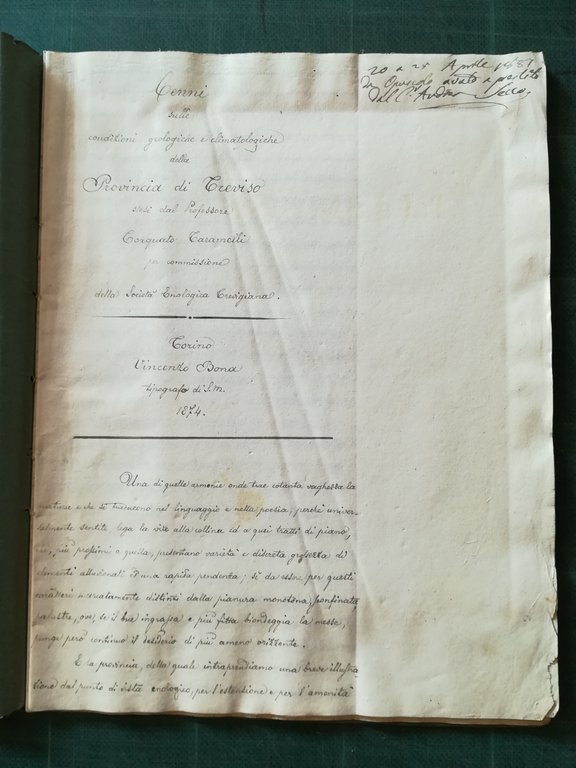 20 a 28 Aprile 1881
Da Opuscolo avuto a prestito
dal C. Andrea
Cenni
sulle
condizioni geologiche e climatologiche
della
Provincia di Treviso
stesi dal Professore
Torquato Taramelli
per commissione
della Società Enologica Trevigiana.
Torino
Vincenzo Bona
tipografo di S. M.
1874.
Una di quelle armonie onde trae cotanta vaghezza la
natura e che si traducono nel linguaggio e nella poesia, perchè univer-
salmente sentite lega la vite alla collina ed a quei tratti di piano,
che, più prossimi a quella, presentano varietà e discreta grossezza di
elementi alluvionali d'una rapida pendenza; sì da essere per questi
caratteri nettamente distinti dalla pianura monotona, sconfinata
palustre, ove, se il bue ingrassa e più fitta biondeggia la messe,
punge però continuo il desiderio di più ameno orizzonte.
E la provincia, della quale intraprendiamo una breve illustra-
zione dal punto di vista enologico, per l'estensione e per l'amenità